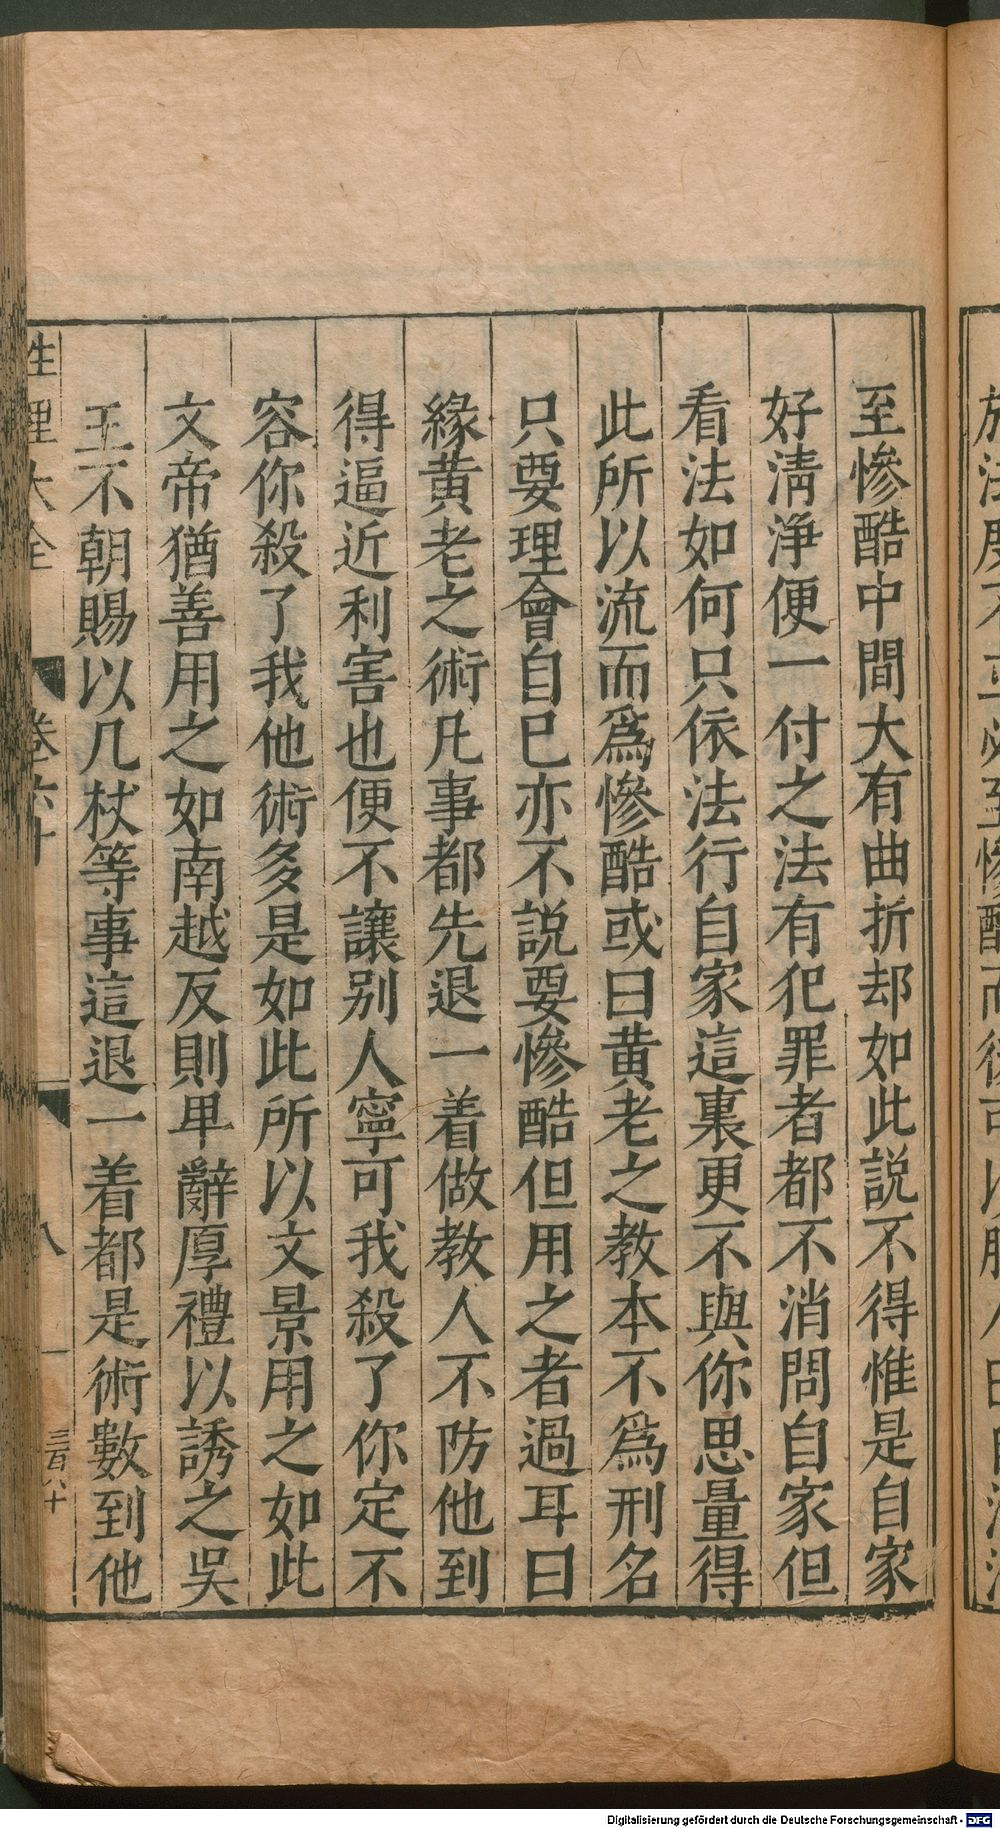 至慘酷中間大有曲折却如此説不得惟是自家
好淸淨便一付之法有犯罪者都不消問自家但
看法如何只依法行自家這裏更不與你思量得
此所以流而爲慘酷或曰黄老之教本不爲刑名
只要理會自已亦不説要慘酷但用之者過耳曰
緣黄老之術凡事都先退一着做教人不防他到
得逼近利害也便不讓别人寧可我殺了你定不
容你殺了我他術多是如此所以文景用之如此
文帝猶善用之如南越反則卑辭厚禮以誘之吳
王不朝賜以几杖等事這退一着都是術數到他
性理大全 卷六十 八 三百八十
Digitalisierung gefördert durch die Deutsche Forschungsgemeinschaft - DFG